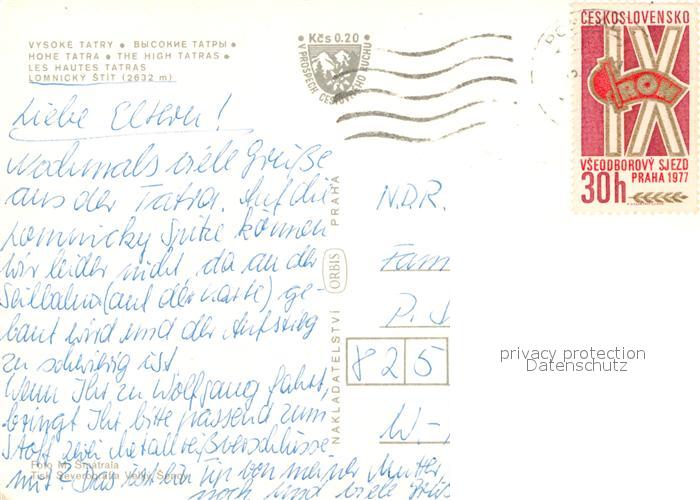 VYSOKÉ TATRY • ВЫСОКИЕ ТАТРЫ •
HOHE TATRA • THE HIGH TATRAS •
LES HAUTES TATRAS
LOMNICKÝ ŠTÍT (2632 m)
Liebe Eltern!
Nochmals viele Grüße
aus der Tatra. Auf die
Lomnicky Spitze können
wir leider nicht, da an der
Seilbahn (auf der Karte) ge-
baut wird und der Aufstieg
zu schwierig ist.
Wenn Ihr zu Wolfgang fahrt,
bringt Ihr bitte passend zum
Stoff zwei Metallreißverschlüsse
mit? Das war ein Tip von meiner Mutter,
noch und viele Grüs
Foto M. Šmátrala
Tisk Severografia Velký Šenov
• Kčs 0.20 •
V PROSPĚCH CESTOVNÍHO RUCHU
NAKLADATELSTVÍ ORBIS PRAHA
N.D.R.
Fam
P.
825
W-
ČESKOSLOVENSKO
IX
ROH
VŠEODBOROVÝ SJEZD
PRAHA 1977
30h
privacy protection
Datenschutz